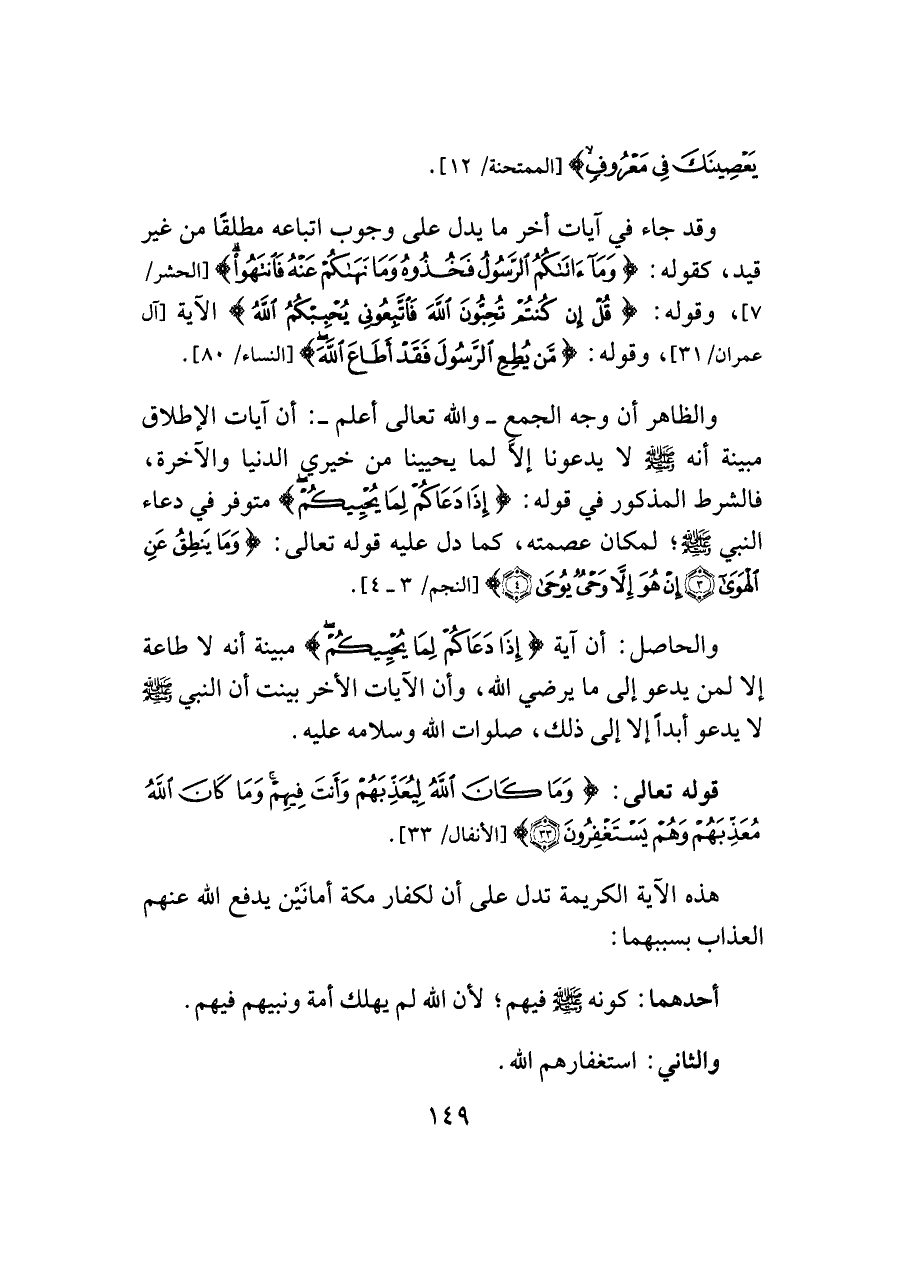 يَعْصِينَكَ فِي مَعْرُوفٍ ۙ﴾ [الممتحنة/ ١٢].
وقد جاء في آيات أخر ما يدل على وجوب اتباعه مطلقًا من غير
قيد، كقوله: ﴿ وَمَآ ءَاتَىٰكُمُ ٱلرَّسُولُ فَخُذُوهُ وَمَا نَهَىٰكُمْ عَنْهُ فَٱنتَهُوا۟ ۚ﴾ [الحشر/
٧]، وقوله: ﴿ قُلْ إِن كُنتُمْ تُحِبُّونَ ٱللَّهَ فَٱتَّبِعُونِى يُحْبِبْكُمُ ٱللَّهُ ﴾ الآية [آل
عمران/ ٣١]، وقوله: ﴿ مَّن يُطِعِ ٱلرَّسُولَ فَقَدْ أَطَاعَ ٱللَّهَ ۖ﴾ [النساء/ ٨٠].
والظاهر أن وجه الجمع ـ والله تعالى أعلم ـ: أن آيات الإطلاق
مبينة أنه ﷺ لا يدعونا إلاَّ لما يحيينا من خيري الدنيا والآخرة،
فالشرط المذكور في قوله: ﴿ إِذَا دَعَاكُمْ لِمَا يُحْيِيكُمْ ۖ﴾ متوفر في دعاء
النبي ﷺ؛ لمكان عصمته، كما دل عليه قوله تعالى: ﴿ وَمَا يَنطِقُ عَنِ
ٱلْهَوَىٰٓ ٣ إِنْ هُوَ إِلَّا وَحْىٌ يُوحَىٰ ٤ ﴾ [النجم/ ٣ ـ ٤].
والحاصل: أن آية ﴿ إِذَا دَعَاكُمْ لِمَا يُحْيِيكُمْ ۖ﴾ مبينة أنه لا طاعة
إلا لمن يدعو إلى ما يرضي الله، وأن الآيات الأخر بينت أن النبي ﷺ
لا يدعو أبداً إلا إلى ذلك، صلوات الله وسلامه عليه.
قوله تعالى: ﴿ وَمَا كَانَ ٱللَّهُ لِيُعَذِّبَهُمْ وَأَنتَ فِيهِمْ ۚ وَمَا كَانَ ٱللَّهُ
مُعَذِّبَهُمْ وَهُمْ يَسْتَغْفِرُونَ ٣٣ ﴾ [الأنفال/ ٣٣].
هذه الآية الكريمة تدل على أن لكفار مكة أمانَيْن يدفع الله عنهم
العذاب بسببهما:
أحدهما: كونه ﷺ فيهم؛ لأن الله لم يهلك أمة ونبيهم فيهم.
والثاني: استغفارهم الله.
١٤٩